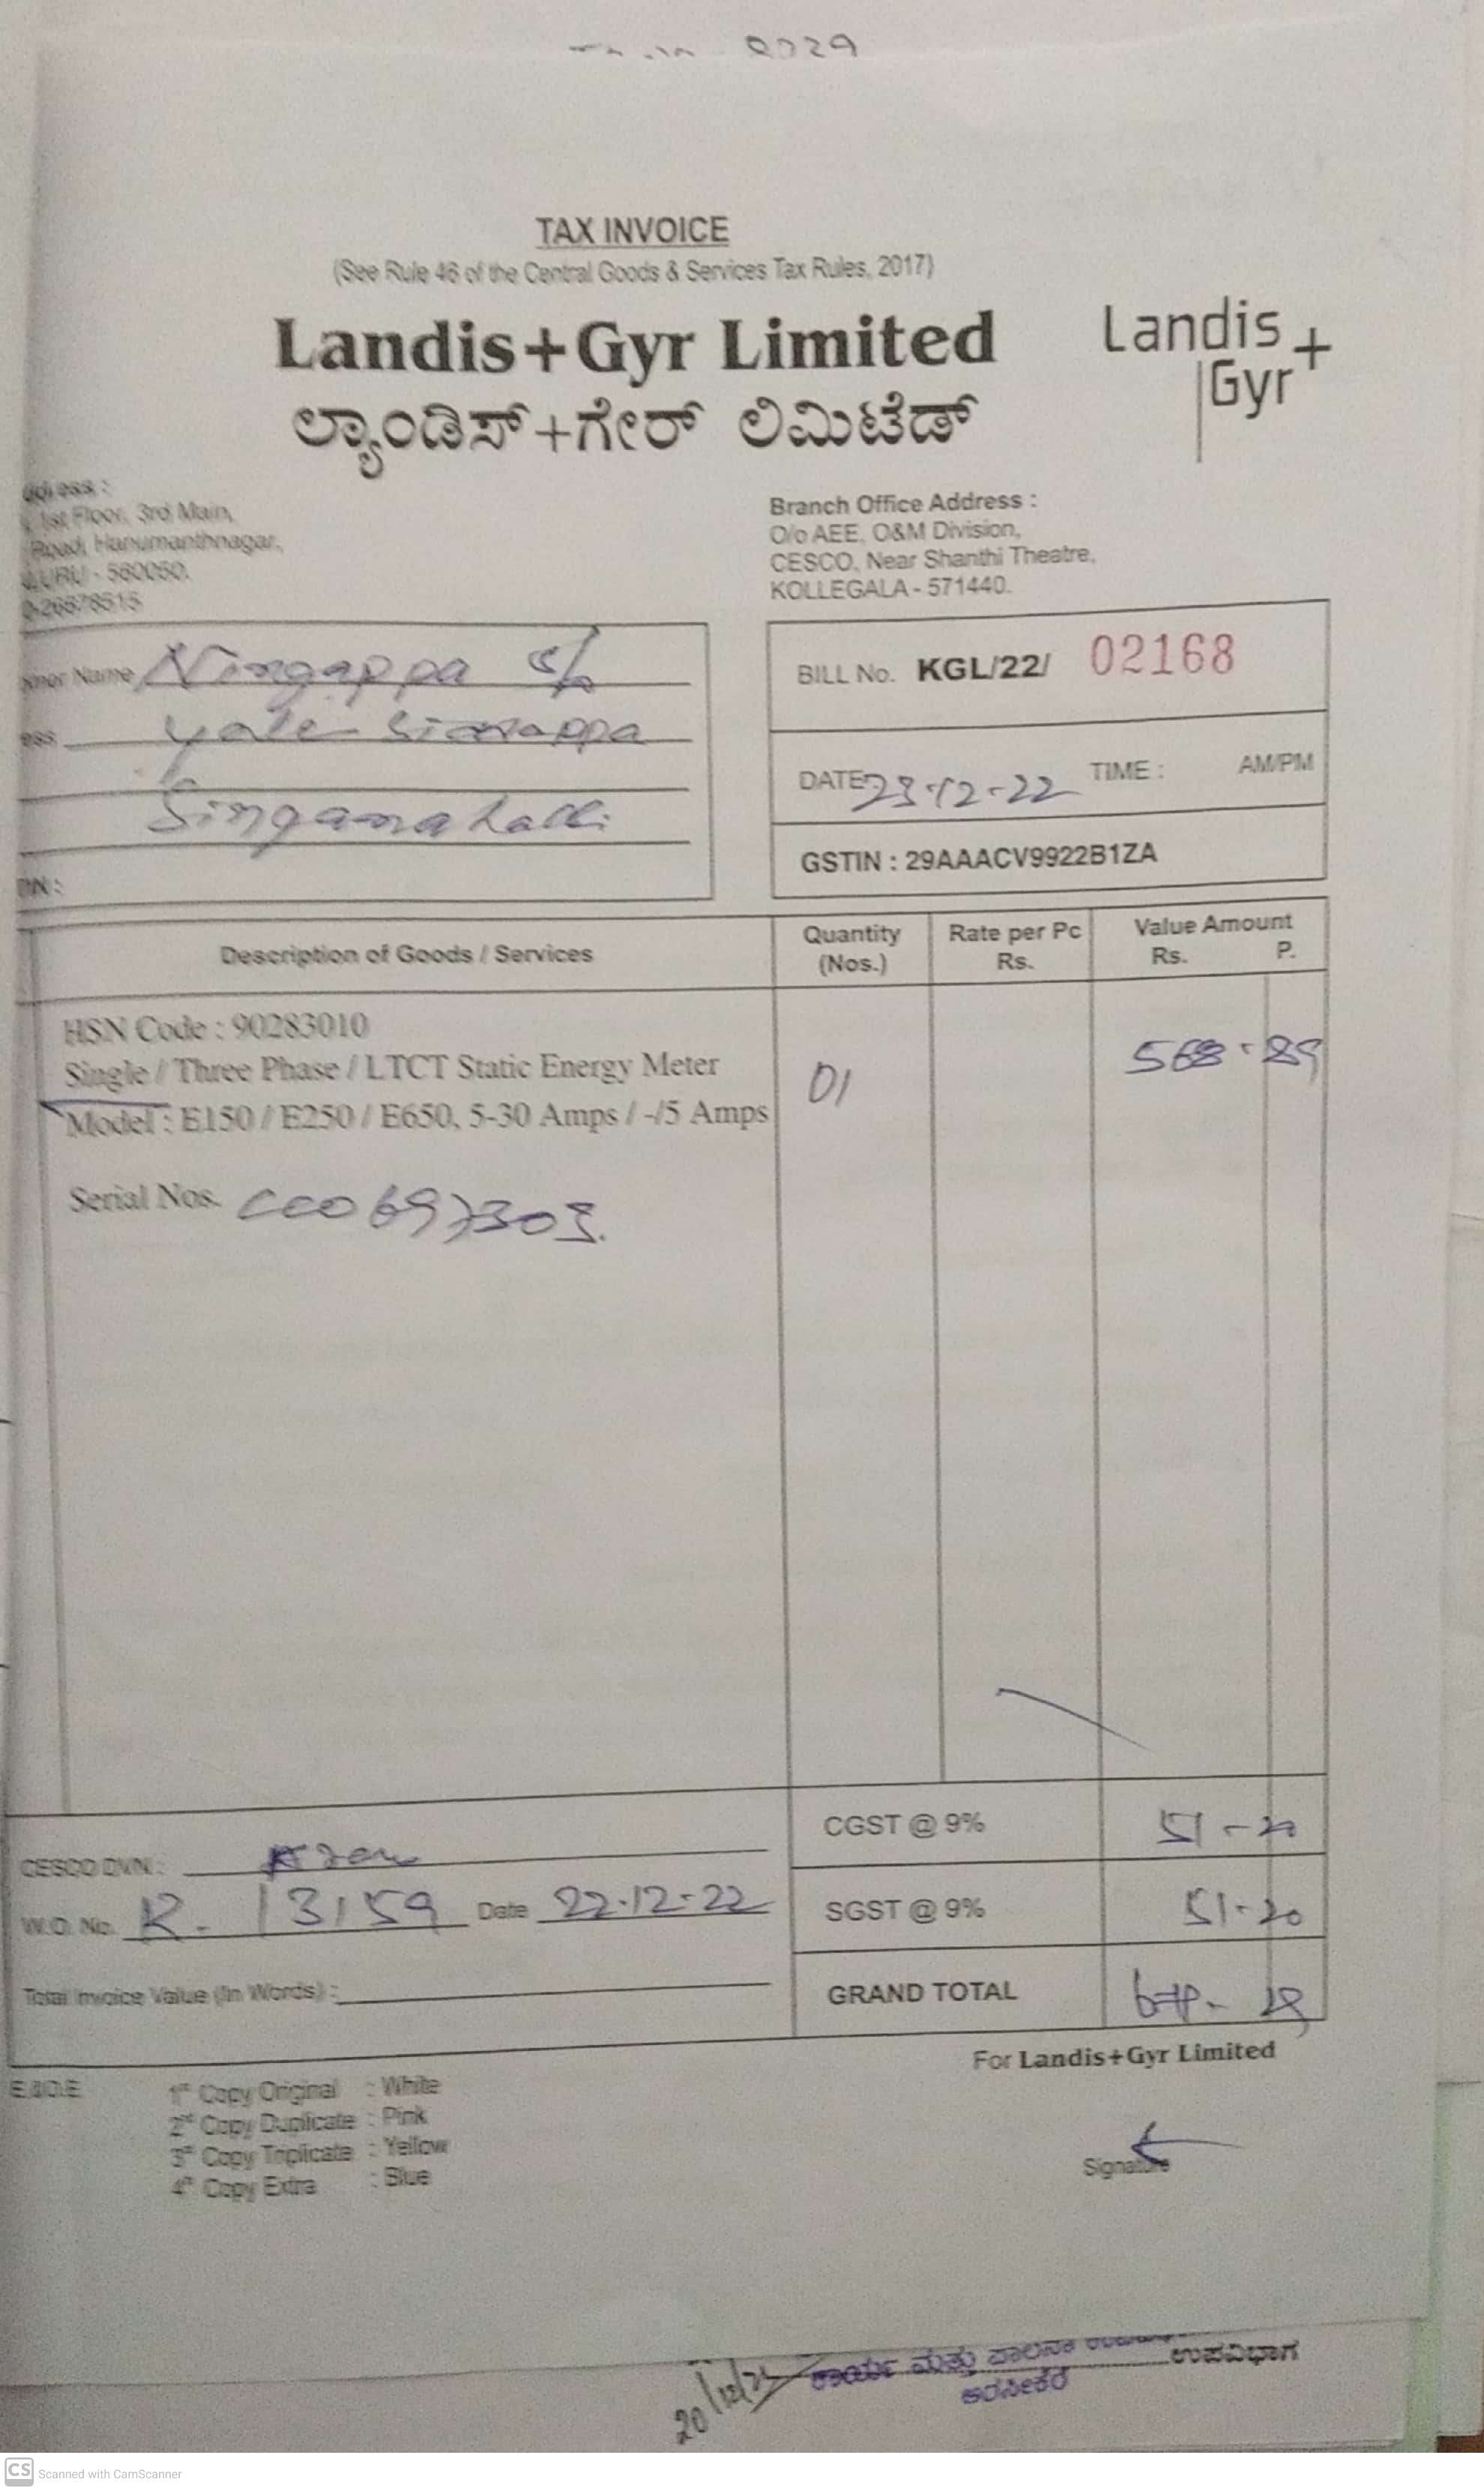 TAX INVOICE
(See Rule 46 of the Central Goods & Services Tax Rules, 2017)
Landis+Gyr Limited
Landis+
Gyr
ಲ್ಯಾಂಡಿಸ್+ಗೇರ್ ಲಿಮಿಟೆಡ್
1st Floor, 3rd Main,
Road, Hanumanthnagar,
560050.
26678515
Branch Office Address :
O/o AEE, O&M Division,
CESCO, Near Shanthi Theatre,
KOLLEGALA - 571440.
Name Ningappa S/o
Singanahalli
BILL No. KGL/22/ 02168
DATE: 23-12-22 TIME : AM/PM
GSTIN : 29AAACV9922B1ZA
Description of Goods / Services Quantity (Nos.) Rate per Pc Rs. Value Amount Rs. P.
HSN Code : 90283010
Single / Three Phase / LTCT Static Energy Meter 01 568-89
Model : E150 / E250 / E650, 5-30 Amps / -/5 Amps
Serial Nos.
CGST @ 9% 51-20
CESCO DVN :
W.O. No. R. 13159 Date 22-12-22
SGST @ 9% 51-20
Total Invoice Value (In Words) :
GRAND TOTAL
For Landis+Gyr Limited
E.&O.E
1st Copy Original : White
2nd Copy Duplicate : Pink
3rd Copy Triplicate : Yellow
4th Copy Extra : Blue
Signature
ಕಾರ್ಯ ಮತ್ತು ಪಾಲನಾ
ಉಪವಿಭಾಗ
ಅರಸೀಕೆರೆ
CS Scanned with CamScanner